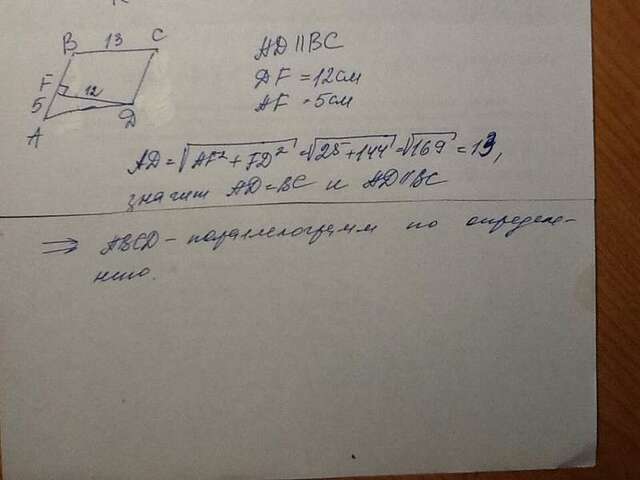 B 13 C
F 12
5
A D
AD||BC
DF = 12см
AF = 5см
AD=√AF²+FD²=√25+144=√169=13,
значит AD=BC и AD||BC
⇒ ABCD-параллелограмм по определе-
нию.